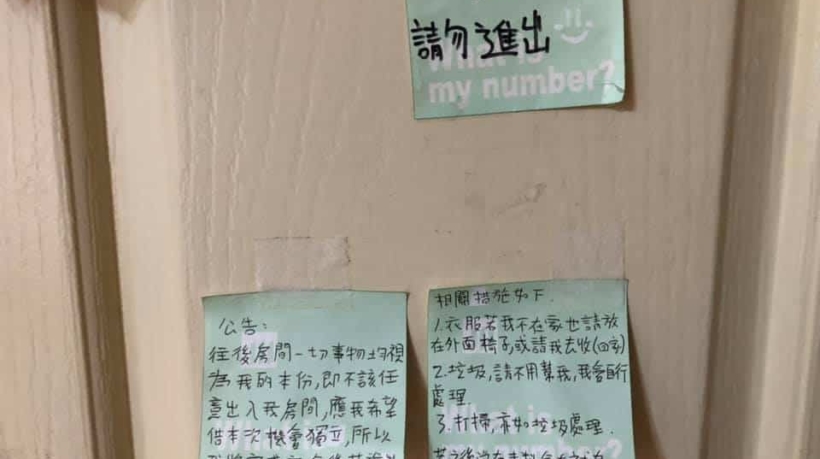 請勿進出
What is
my number?
公告:
往後房間一切事物均視
為我的本份,即不該任
意出入我房間,應我希望
借本次機會獨立,所以
相關措施如下
1.衣服若我不在家也請放
在外面椅子,或請我去收(回家)
2.垃圾,請不用幫我,我會自行
處理
3.打掃,亦如垃圾處理.